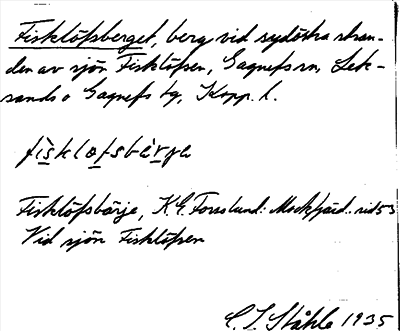 Fisklöfsberget, berg vid sydöstra stran-
den av sjön Fisklöfsen, Gagnefs sn, Lek-
sands o Gagnefs tg, Kopp. l.
fisklofsbärje
Fisklöfsbärje, K.E. Forslund: Mockfjärd. sid 53
Vid sjön Fisklöfsen
C. I. Ståhle 1935